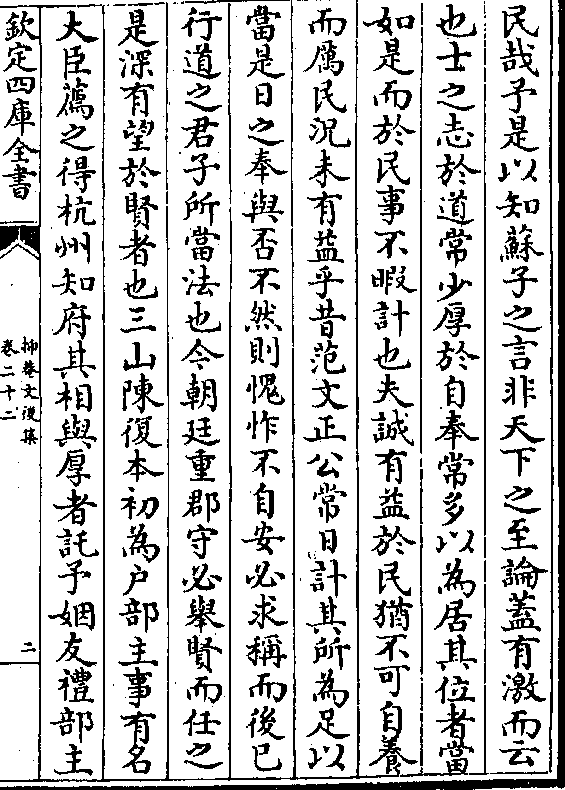 民哉予是以知蘇子之言非天下之至論蓋有激而云
也士之志於道常少厚於自奉常多以為居其位者當
如是而於民事不暇計也夫誠有益於民猶不可自養
而厲民況未有益乎昔范文正公常日計其所為足以
當是日之奉與否不然則愧怍不自安必求稱而後已
行道之君子所當法也今朝廷重郡守必舉賢而任之
是深有望於賢者也三山陳復本初為户部主事有名
大臣薦之得杭州知府其相與厚者託予姻友禮部主
欽定四庫全書
抑菴文後集
卷二十二
二